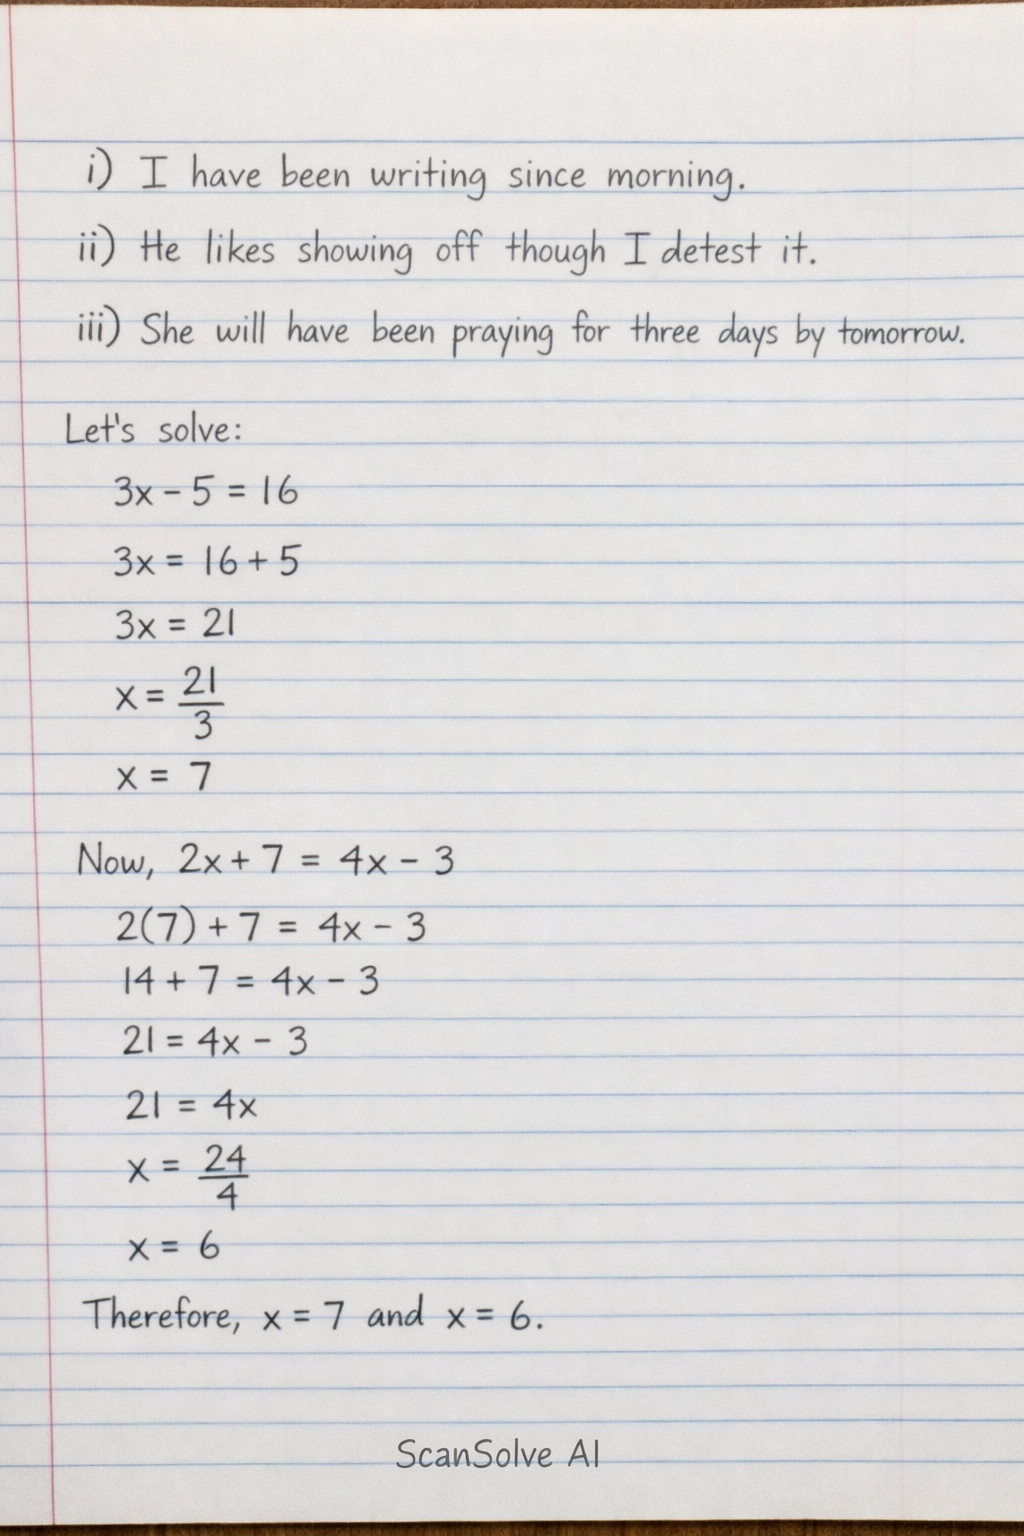 i) I have been writing since morning.
ii) He likes showing off though I detest it.
iii) She will have been praying for three days by tomorrow.
Let's solve:
3x - 5 = 16
3x = 16 + 5
3x = 21
x = 21/3
x = 7
Now, 2x + 7 = 4x - 3
2(7) + 7 = 4x - 3
14 + 7 = 4x - 3
21 = 4x - 3
21 = 4x
x = 24/4
x = 6
Therefore, x = 7 and x = 6.
ScanSolve AI